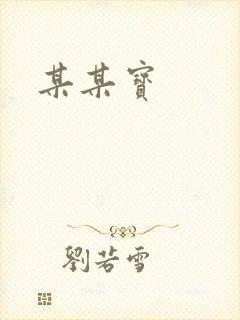 某某寶
劉若雪